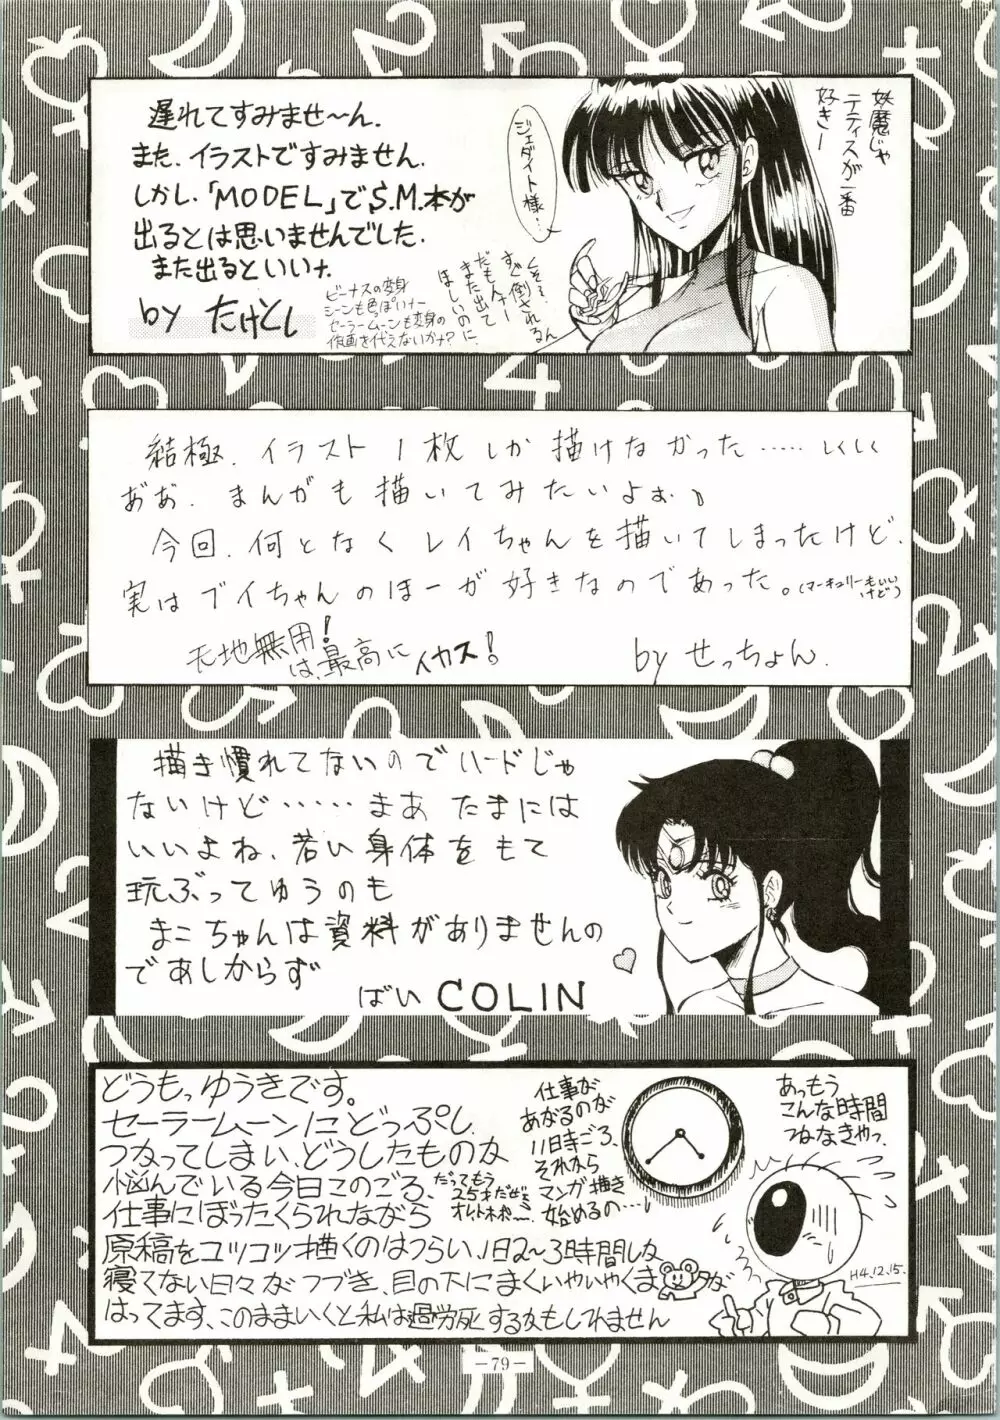 遅れてすみませ〜ん.
また.イラストですみません.
しかし.「MODEL」でS.M.本が
出るとは思いませんでした.
また出るといいナ.
by たけとし
ビーナスの変身
シーンも色ぽいナー
セーラームーンも変身の
作画を代えないかナ?
妖魔じゃ
テティスが一番
好きー
ジェダイト様…
すぐ倒されるん
だもんナー
また出て
ほしいのに
結極.イラスト1枚しか描けなかった……しくしく
あ゛あ゛.まんがも描いてみたいよぉ。
今回.何となくレイちゃんを描いてしまったけど.
実はブイちゃんのほーが好きなのであった。(マーキュリーもいい
けど)
天地無用!
は、最高にイカス!
by せっちょん.
描き慣れてないのでハードじゃ
ないけど……まあ たまには
いいよね、若い身体をもて
玩ぶってゆうのも
まこちゃんは資料がありませんの
であしからず
ばい COLIN
どうもっゆうきです。
セーラームーンにどっぷし
つかってしまい、どうしたものか
悩んでいる今日このごろ、
だってもう
25才だぜ
仕事にぼったくられながら
原稿をコツコツ描くのはつらい、1日2〜3時間しか
寝てない日々がつづき、目の下にまくいやいやくまクマが
はってます、このままいくと私は過労死するかもしれません
仕事が
あがるのが
11時ごろ、
それから
マンガ描き
始めるの…、
あっもう
こんな時間
つねなきゃっ
H4.12.15.
－79－